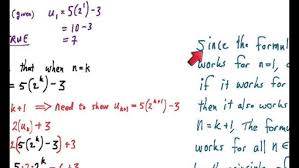 (given) u₁ = 5(2¹) - 3
= 10 - 3
TRUE = 7
that when n = k
= 5(2ᵏ) - 3
k+1 ⇒ Need to show uₖ₊₁ = 5(2ᵏ) - 3
2(uₖ) + 3
(5(2ᵏ) - 3) + 3
Since the formul
works for n=1, a
if it works for
then it also work
n = k+1. The fo
works for all n